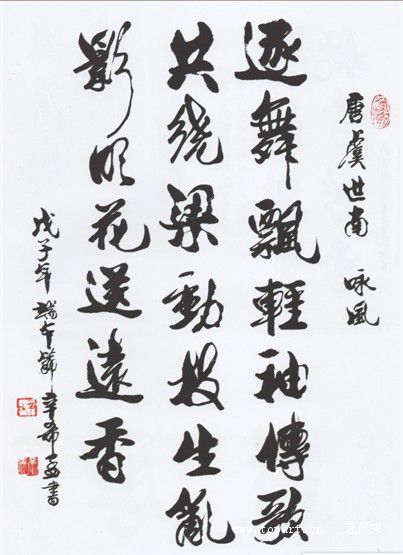 唐虞世南 咏風
逐舞飄輕袖傳歌
共繞梁動枝生亂
影吹花送遠香
戊子年端午節辛希書